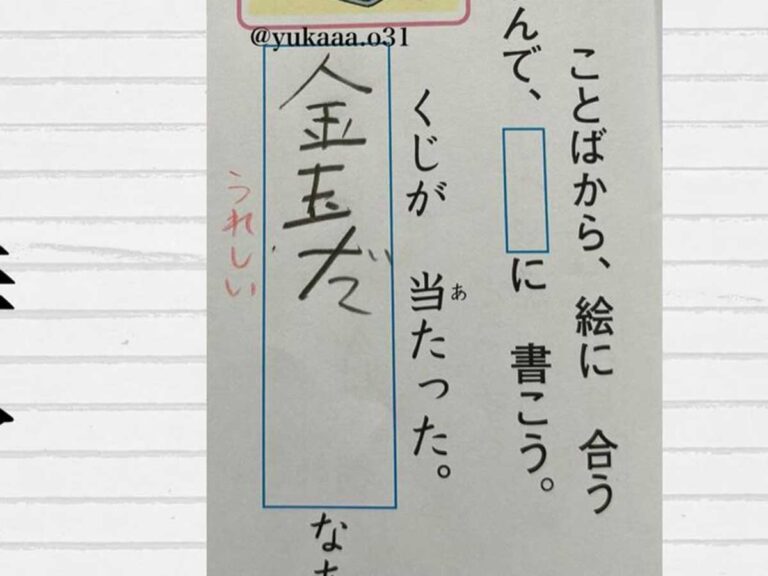 @yukaaa.o31
ことばから、絵に 合う
んで、 に 書こう。
くじが 当たった。
あ
金玉だ
うれしい